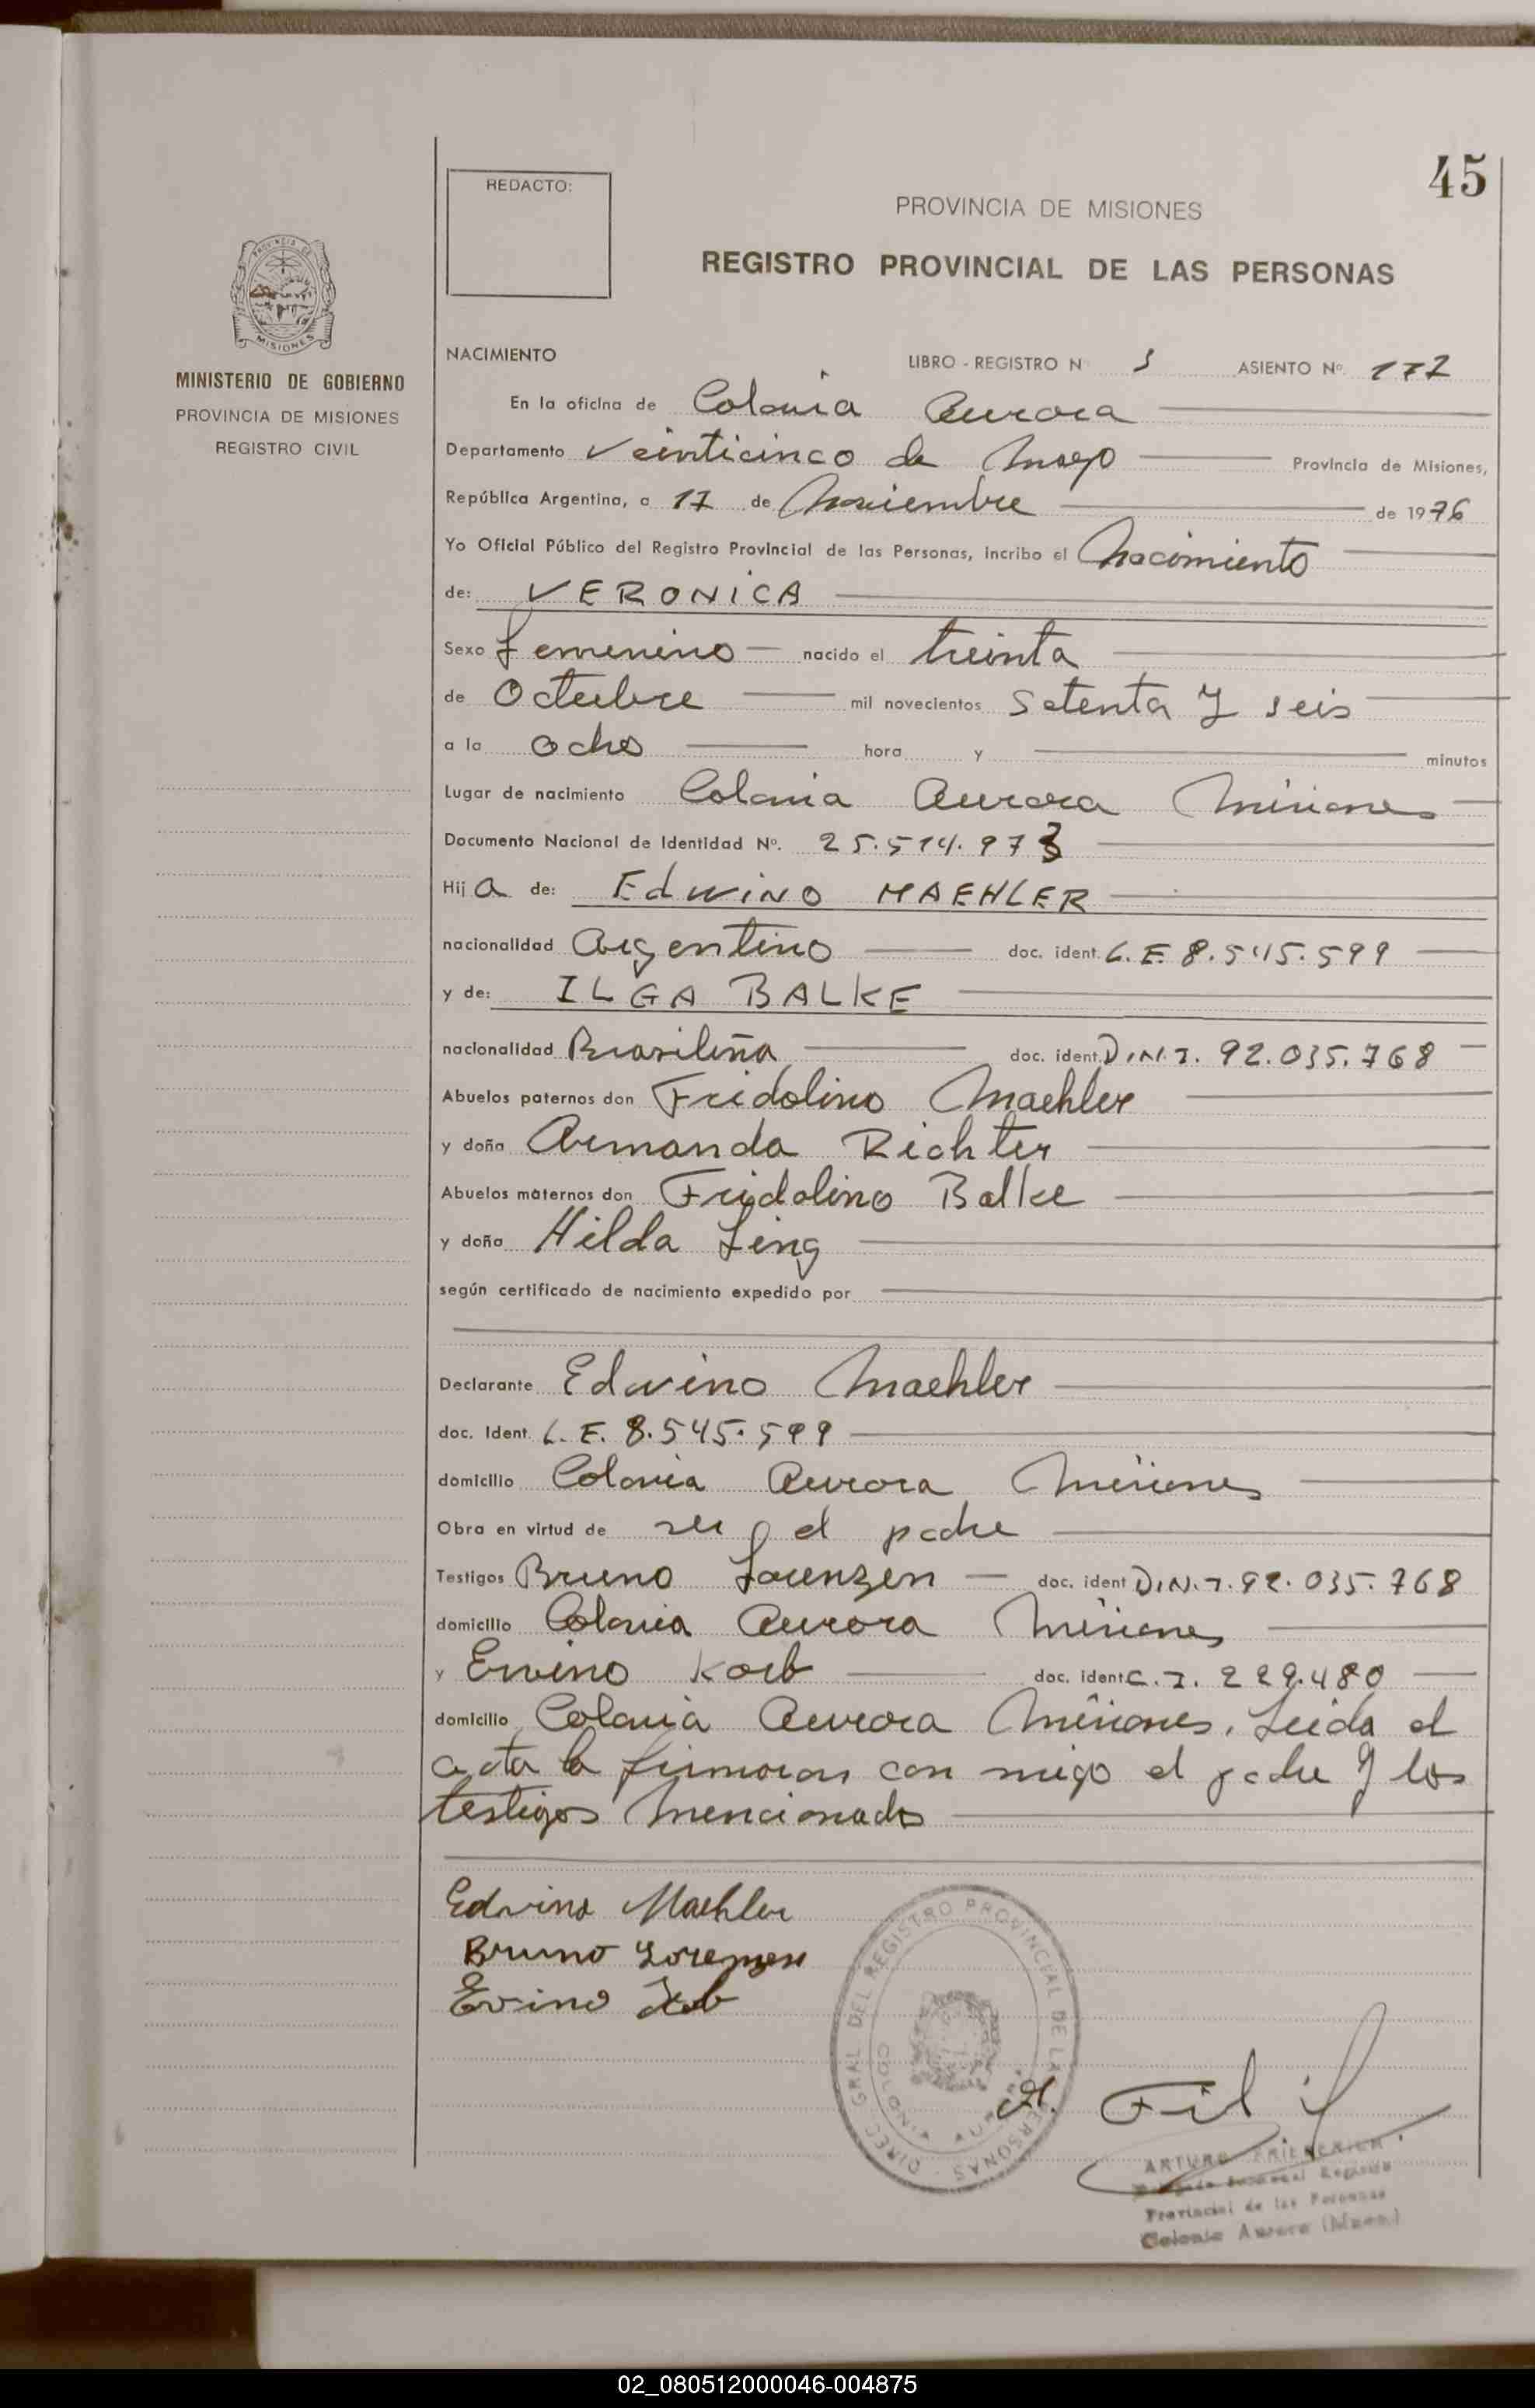 45
REDACTO:
PROVINCIA DE MISIONES
REGISTRO PROVINCIAL DE LAS PERSONAS
MISIONES
MINISTERIO DE GOBIERNO
PROVINCIA DE MISIONES
REGISTRO CIVIL
NACIMIENTO LIBRO - REGISTRO N ASIENTO Nº. 177
En la oficina de Colonia Aurora
Departamento Veinticinco de Mayo Provincia de Misiones,
República Argentina, a 17 de Noviembre de 1976
Yo Oficial Público del Registro Provincial de las Personas, incribo el Nacimiento
de: VERONICA
Sexo femenino nacido el treinta
de Octubre mil novecientos setenta y seis
a la ocho hora y minutos
Lugar de nacimiento Colonia Aurora Misiones
Documento Nacional de Identidad Nº. 25.514.973
Hij a de: Edwino MAEHLER
nacionalidad Argentino doc. ident. L.E. 8.545.599
y de: ILGA BALKE
nacionalidad Brasileña doc. ident. D.N.I. 92.035.768
Abuelos paternos don Fridolino Maehler
y doña Armanda Richter
Abuelos maternos don Fridolino Balke
y doña Hilda Ling
según certificado de nacimiento expedido por
Declarante Edwino Maehler
doc. Ident. L.E. 8.545.599
domicilio Colonia Aurora Misiones
Obra en virtud de ser el padre
Testigos Bruno Lorenzen doc. ident D.N.I. 92.035.768
domicilio Colonia Aurora Misiones
y Ervino Korb doc. ident C.I. 229.480
domicilio Colonia Aurora Misiones, Leida el
acta la firmaron con migo el padre y los
testigos mencionados
Edwino Maehler
Bruno Lorenzen
Ervino Korb
DIREC. GRAL DEL REGISTRO PROVINCIAL DE LAS PERSONAS
ARTURO
Provincial de las Personas
Colonia Aurora (Mnes.)
02_080512000046-004875